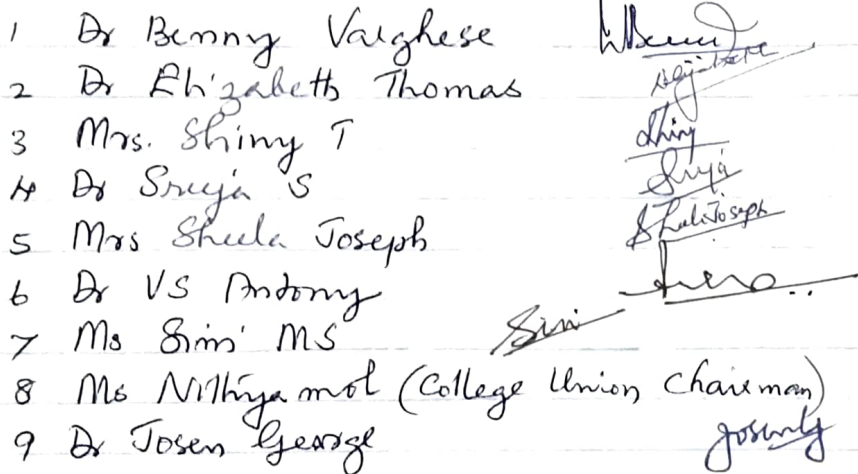 1 Dr Benny Varghese
2 Dr Elizabeth Thomas
3 Mrs. Shiny T Shiny
4 Dr Sreeja S Sreeja
5 Mrs Sheela Joseph Sheela Joseph
6 Dr VS Antony
7 Ms Simi MS Simi
8 Ms Nithyamol (College Union Chairman)
9 Dr Josen George